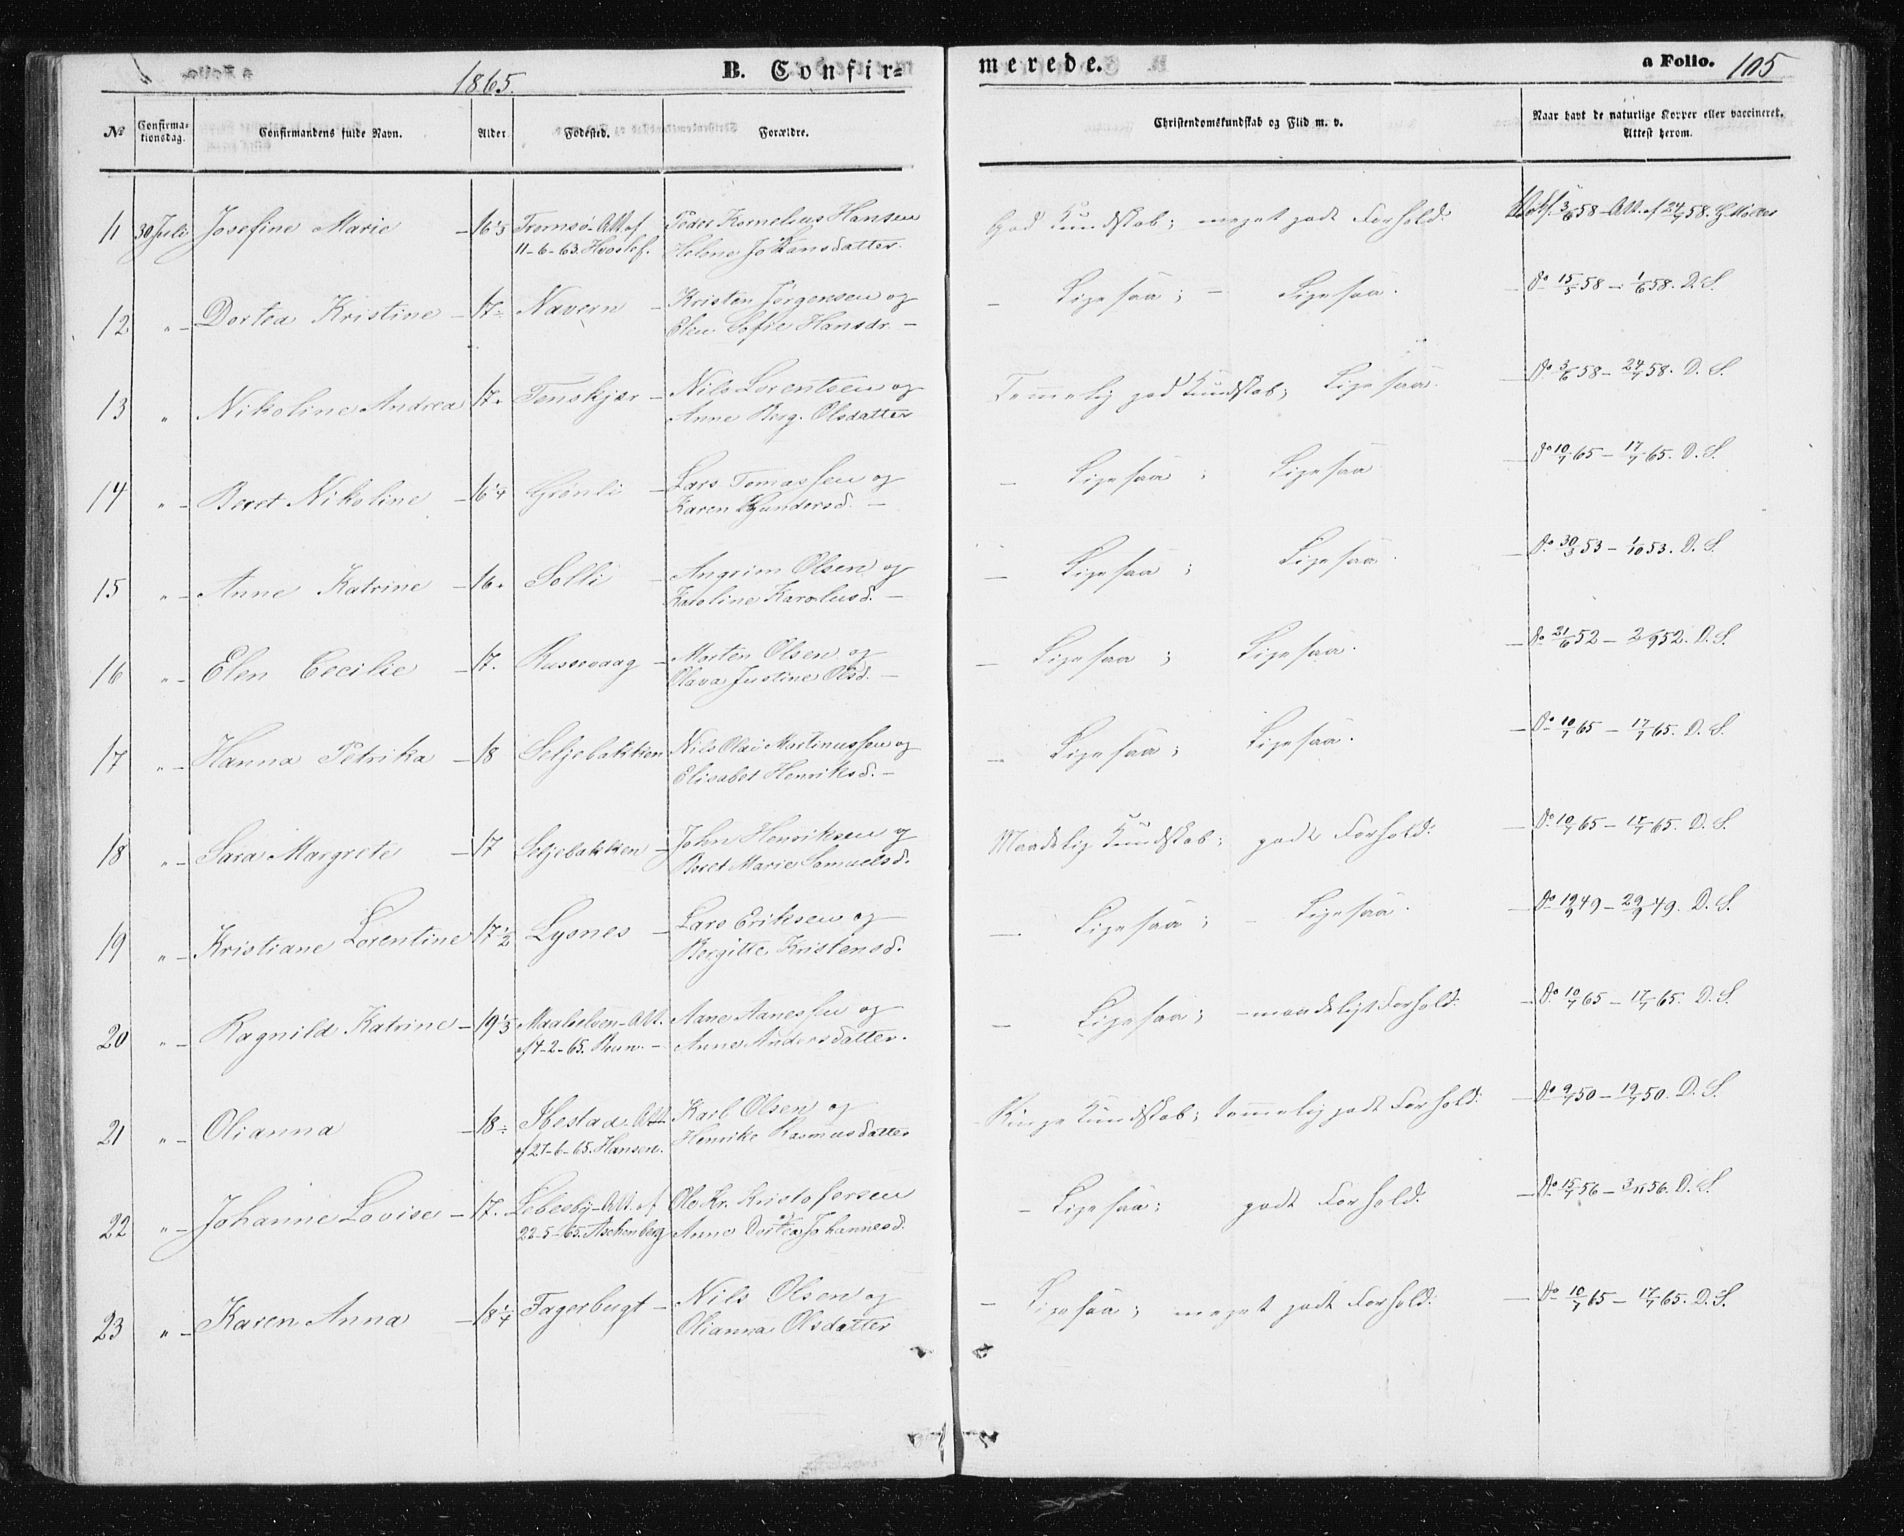 1865.
B. Confir=
merede.
a Folio. 105
№
Confirma-
tionsdag.
Confirmandens fulde Navn.
Alder
Fødested.
Forældre.
Christendomskundskab og Flid m. v.
Naar havt de naturlige Kopper eller vaccineret.
Attest herom.
11 30 Juli Josefine Marie - 16 1/5 Tromsø - Att. af Peder Kornelius Hansen God Kundskab; meget godt Forhold. 3/6 58 - Att. af 24/7 58.
11-6-63. Helene Johansdatter
12 " - Dortea Kristine - 17 - Navern - Kristen Jørgensen og - Ligesaa; - Ligesaa. - Do 15/5 58 - 1/6 58. D. S.
Elen Sofie Hansdr. -
13 " Nikoline Andrea 17. Tenskjær - Nils Lorentsen og Temmelig god Kundskab; Ligesaa. - Do 3/6 58 - 24/7 58. D. S.
Anne Berg. Olsdatter
14 " - Beret Nikoline - 16 1/4 Grønli - Lars Tomassen og - Ligesaa; Ligesaa - Do 10/7 65 - 17/7 65. D. S.
Karen Gundersd. -
15 " - Anne Katrine - 16. Solli - Angrim Olsen og - Ligesaa; Ligesaa. - Do 30/3 53 - 1/10 53. D. S.
Karoline Karolusd. -
16 " - Elen Cecilie - 17. Russevaag - Morten Olsen og - Ligesaa; Ligesaa. - Do 21/6 52 - 2/9 52. D. S.
Olava Justine Olsd. -
17 " - Hanna Petrika - 18 Seljebakken Nils Olai Martinussen og - Ligesaa; Ligesaa. - Do 10/7 65 - 17/7 65. D. S.
Elisabet Henriksd. -
18 " - Sara Margrete - 17 Seljebakken - John Henriksen og Maadelig Kundskab; godt Forhold. - Do 10/7 65 - 17/7 65. D. S.
Beret Marie Samuelsd.
19 " - Kristiane Lorentine 17 1/2 Lysnes - Lars Eriksen og - Ligesaa; - Ligesaa. - Do 19/9 49 - 29/9 49. D. S.
Bergitte Kristensd.
20 " - Ragnild Katrine - 19 1/3 Maalselven - Att. Aane Aanessen og - Ligesaa; - maadeligt Forhold. - Do 10/7 65 - 17/7 65. D. S.
af 4-2-65. - Anne Andersdatter.
21 " - Olianna - 18 - Ibestad - Att. Karl Olsen og - Ringe Kundskab; temmelig godt Forhold. - Do 9/7 50 - 19/7 50. D. S.
af 27-6-65. Hansen. Henrike Rasmusdatter
22 " - Johanne Lovise - 17. Lebesby - Att. af Ole Kr. Kristofersen - Ligesaa; godt Forhold. - Do 15/7 56 - 3/11 56. D. S.
22-5-65. Aschenberg Anne Dortea Johannesd.
23 " - Karen Anna - 18 1/4 Fagerbugt - Nils Olsen og - Ligesaa; meget godt Forhold. - Do 10/7 65 - 17/7 65. D. S.
Olianna Olsdatter